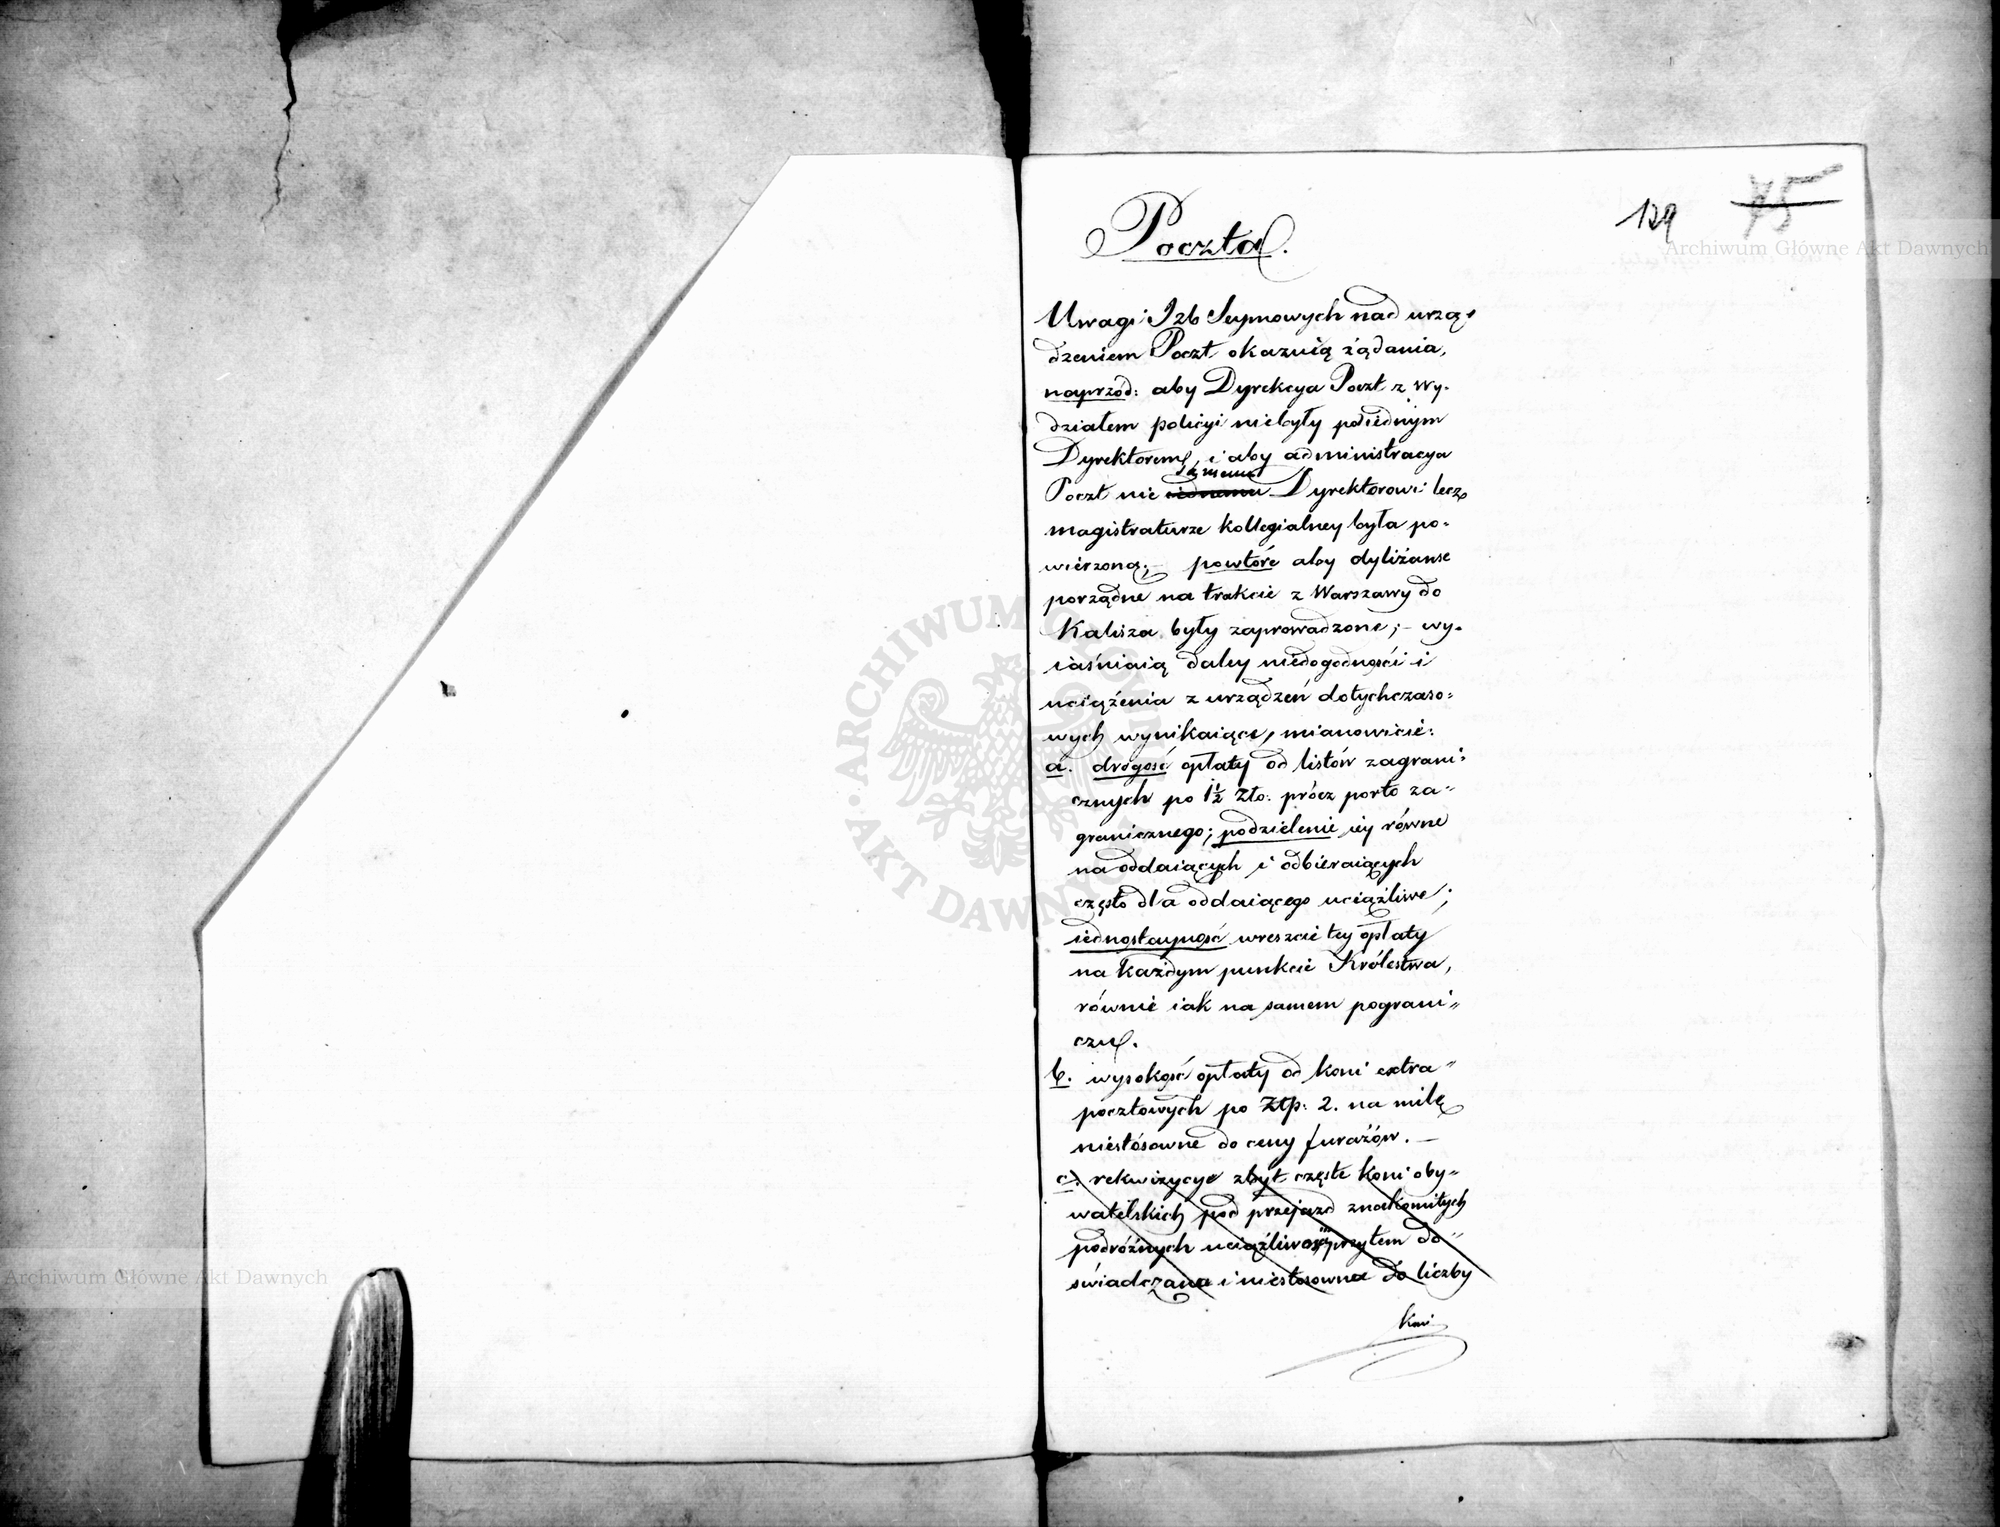 129 75
Poczta.
Uwagi Izb Seymowych nad urzą-
dzeniem Poczt okazuią żądania,
naprzód: aby Dyrekcya Poczt z Wy-
działem policyi niebyły pod iednym
Dyrektorem, i aby administracya
samemu
Poczt nie iednemu Dyrektorowi lecz
magistraturze kollegialney była po-
wierzoną; – powtóre aby dyliżanse
porządne na trakcie z Warszawy do
Kalisza były zaprowadzone; – wy-
iaśniaią daley niedogodności i
uciążenia z urządzeń dotychczaso-
wych wynikaiące, mianowicie:
a. drogość opłaty od listów zagrani-
cznych po 1½ Zło: prócz porto za-
granicznego; podzielenie iey równe
na oddaiących i odbieraiących
często dla oddaiącego uciążliwe;
iednostayność wreszcie tey opłaty
na każdym punkcie Królestwa,
równie iak na samem pograni-
czu.
b. wysokość opłaty od koni extra-
pocztowych po Złp: 2. na milę
niestósowne do ceny furażów. –
c). rekwizycye zbyt częste koni oby-
watelskich pod przejazd znakomitych
podróżnych uciążliwa przytem do-
świadczana i niestosowna do liczby
koni
ARCHIWUM GŁÓWNE AKT DAWNYCH
Archiwum Główne Akt Dawnych
Archiwum Główne Akt Dawnych